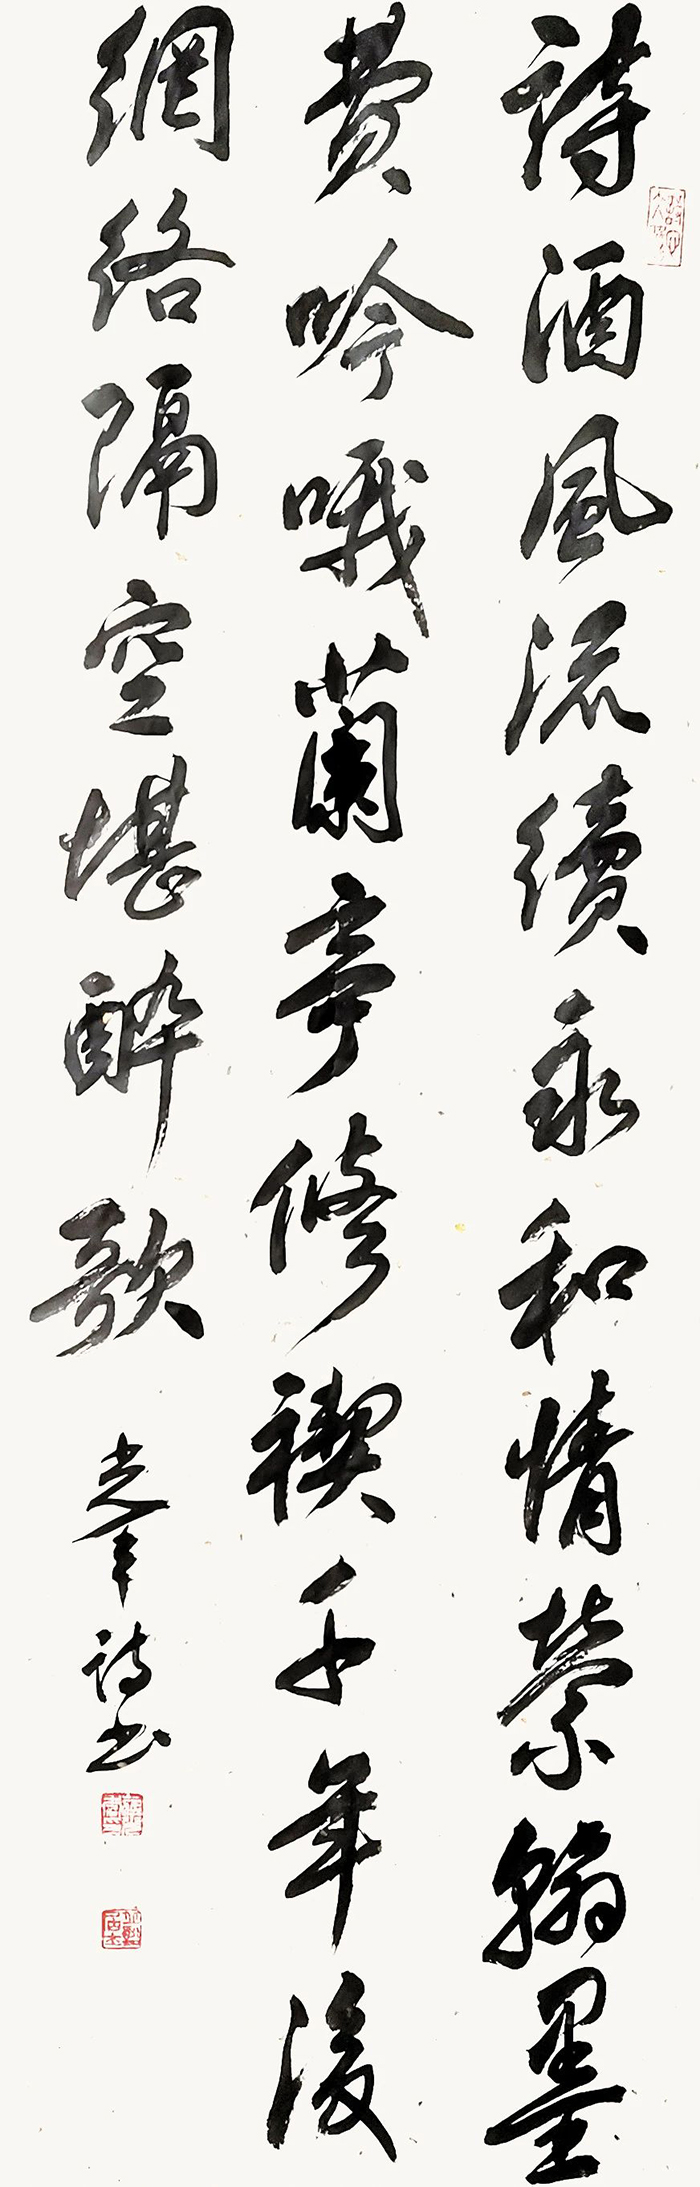 詩酒風流續永和情縈翰墨
費吟哦蘭亭修禊千年後
網絡隔空堪醉歌
詩書